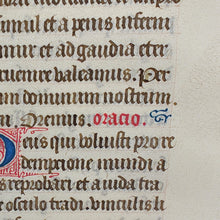 simul et a penis inferni
mur et ad gaudia eter
uenire ualeamus. Per
um dominum nostrum
Oremus. oratio.
Deus qui uoluisti pro re
demptione mundi a
s reprobari et a iuda tra
osculo tradi. uinculis li